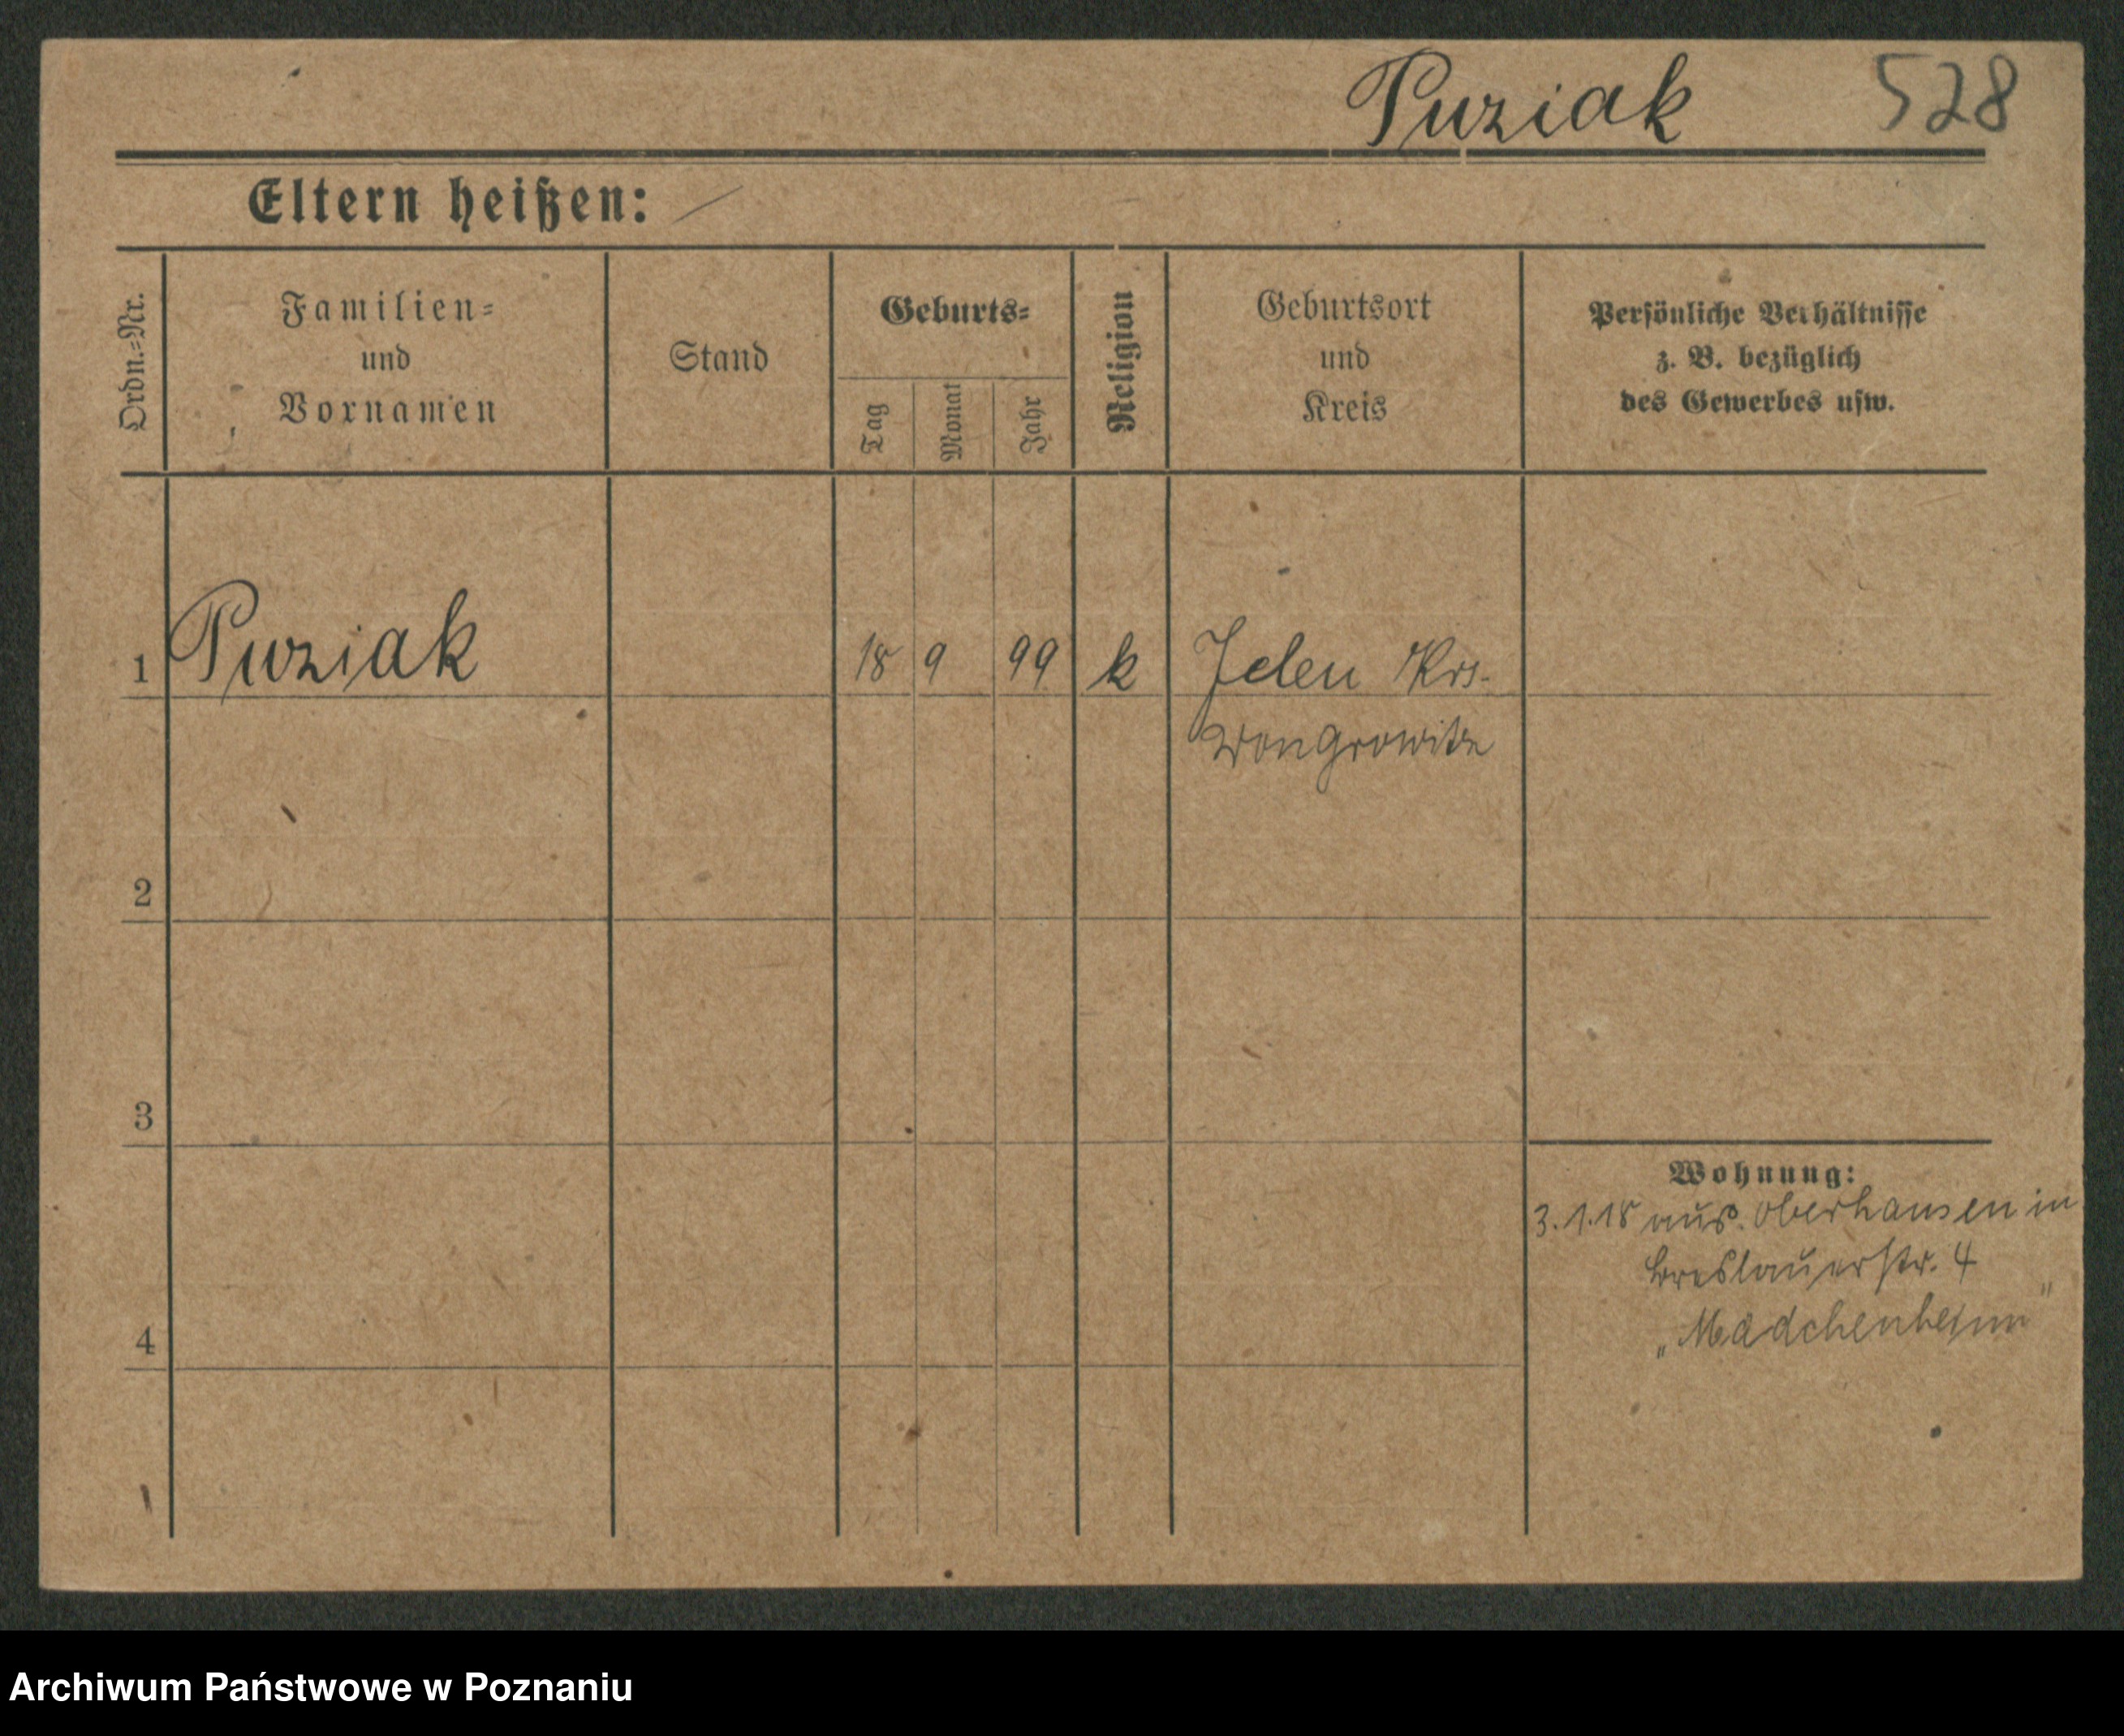 Puziak 528
Eltern heißen: —
Ordn.-Nr.
Familien-
und
Vornamen
Stand
Geburts-
Tag
Monat
Jahr
Religion
Geburtsort
und
Kreis
Persönliche Verhältnisse
z. B. bezüglich
des Gewerbes usw.
1 Puziak 18 9 99 k Jelen Krs.
Wongrowitz
2
3
Wohnung:
3.1.18 aus. Oberhausen in
Breslauerstr. 4
4 „Mädchenheim"
Archiwum Państwowe w Poznaniu